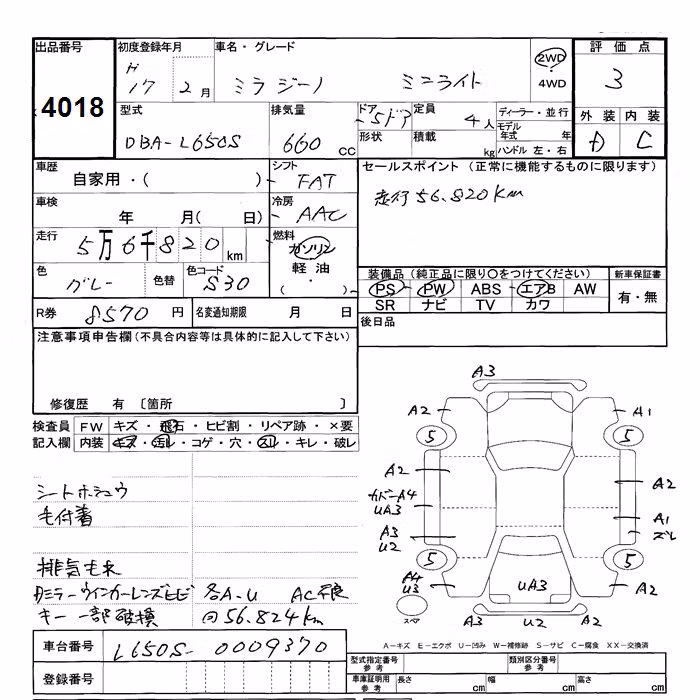 出品番号
4018
初度登録年月
H
17
2月
車名・グレード
ミラジーノ ミニライト
2WD
4WD
評価点
3
外装 内装
D C
型式
DBA-L650S
排気量
660 cc
ドア
5ドア
形状
定員
4人
積載
kg
ディーラー・並行
モデル年式 年
ハンドル 左・右
車歴
自家用・( )
シフト
FAT
車検
年 月( 日)
冷房
AAC
走行
5万6千820km
燃料
ガソリン
軽油
( ・ )
色
グレー
色替
色コード
S30
R券 8570円
名変通知期限 月 日
セールスポイント(正常に機能するものに限ります)
走行56.820Km
装備品(純正品に限り○をつけてください)
PS PW ABS エアB AW
SR ナビ TV カワ
新車保証書
有・無
後日品
注意事項申告欄(不具合内容等は具体的に記入して下さい)
修復歴 有 〔箇所 〕
検査員記入欄
FW キズ・飛石・ヒビ割・リペア跡・×要
内装 キズ・汚れ・コゲ・穴・スレ・キレ・破レ
シートホショウ
毛付着
排気もれ
ミラーウインカーレンズヒビ 各A-U AC不良
キー一部破損 56.824km
A3
A2 A1
5 5
A2 A2
カバーA4
UA3 A1
A3 ズレ
U2
5 5
A4
U3 UA3 A2
スペア
A3 U2 A2
車台番号 L650S-0009370
登録番号
A-キズ E-エクボ U-凹み W-補修跡 S-サビ C-腐食 XX-交換済
型式指定番号
参考
類別区分番号
参考
車庫証明用
参考
長さ cm 幅 cm 高さ cm